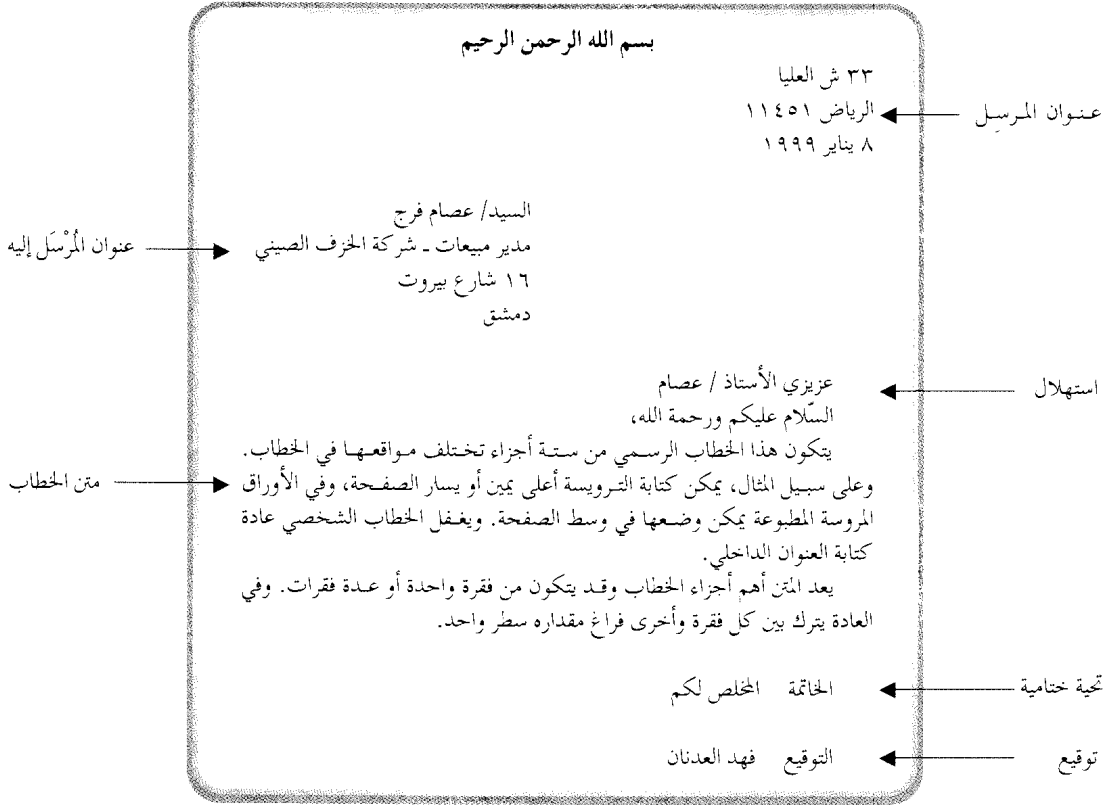 بسم الله الرحمن الرحيم
٣٣ ش العليا
عـنـوان المـرسِـل
الرياض ١١٤٥١
٨ يناير ١٩٩٩
السيد/ عصام فرج
عنوان المُرْسَل إليه
مدير مبيعات ـ شركة الخزف الصيني
١٦ شارع بيروت
دمشق
استهلال
عزيزي الأستاذ / عصام
السّلام عليكم ورحمة الله،
يتكون هذا الخطاب الرسـمي من ستـة أجزاء تخـتلف مـواقعـهـا في الخطاب.
متن الخطاب
وعلى سبـيل المثال، يمكن كتابة التـرويسة أعلى يمين أو يسار الصفـحـة، وفي الأوراق
المروسة المطبوعة يمكن وضـعها في وسط الصفحة. ويغـفل الخطاب الشخصي عادة
كتابة العنوان الداخلي.
يعد المتن أهم أجزاء الخطاب وقـد يتكون من فقرة واحدة أو عـدة فقرات. وفي
العادة يترك بين كل فقرة وأخرى فراغ مقداره سطر واحد.
تحية ختامية
الخاتمة المخلص لكم
توقيع
التوقيع فهد العدنان